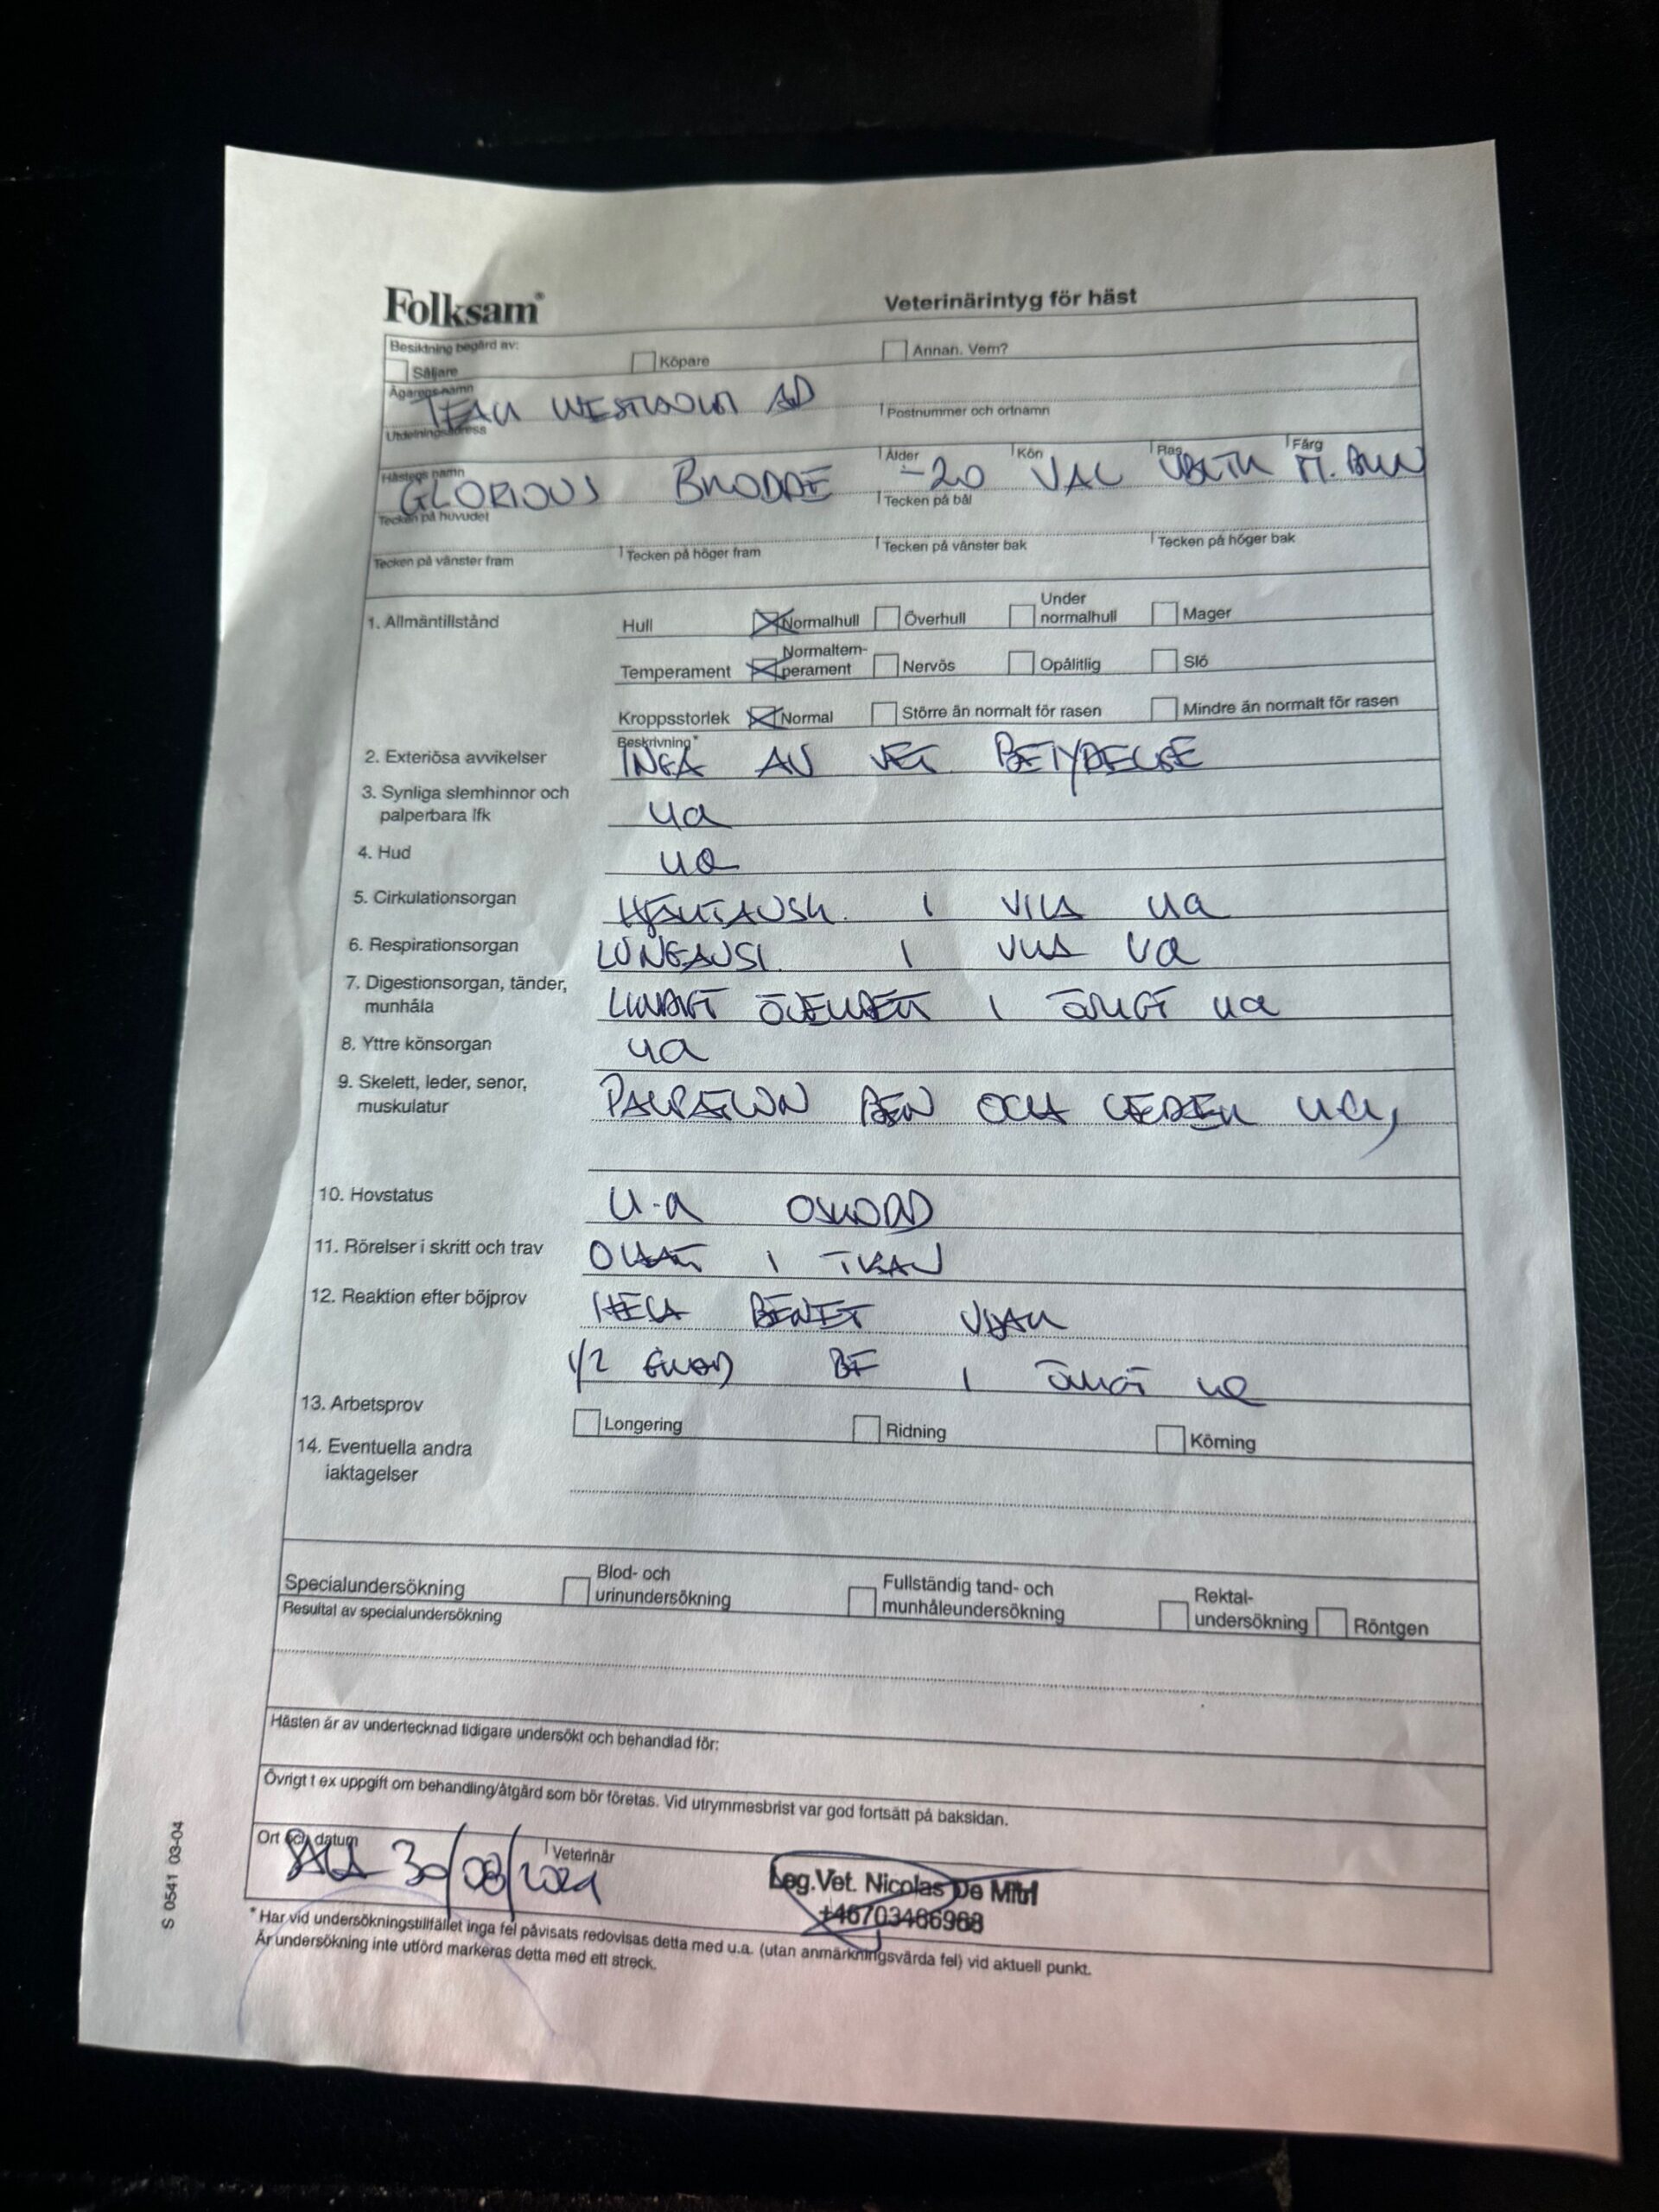 Folksam
Veterinärintyg för häst
Besiktning begärd av:
Säljare Köpare Annan. Vem?
Ägarens namn
TEAM WESTHOLM AB
Utdelningsadress Postnummer och ortnamn
Hästens namn Ålder Kön Ras Färg
GLORIOUS BRODDE -20 VAL VBLTR M. BRUN
Tecken på huvudet Tecken på bål
Tecken på vänster fram Tecken på höger fram Tecken på vänster bak Tecken på höger bak
1. Allmäntillstånd Hull Normalhull Överhull Under normalhull Mager
Temperament Normaltemperament Nervös Opålitlig Slö
Kroppsstorlek Normal Större än normalt för rasen Mindre än normalt för rasen
Beskrivning*
2. Exteriösa avvikelser INGA AV VET. BETYDELSE
3. Synliga slemhinnor och palperbara lfk ua
4. Hud ua
5. Cirkulationsorgan HJÄRTAUSK. I VILA ua
6. Respirationsorgan LUNGAUSK. I VILA ua
7. Digestionsorgan, tänder, munhåla LINDRIGT ÖVERBETT I ÖVRIGT ua
8. Yttre könsorgan ua
9. Skelett, leder, senor, muskulatur PALPATION BEN OCH LEDER u.a,
10. Hovstatus U.a OSKODD
11. Rörelser i skritt och trav OHALT I TRAV
12. Reaktion efter böjprov HELA BENET
1/2 GRAD BF I ÖVRIGT ua
13. Arbetsprov Longering Ridning Körning
14. Eventuella andra iaktagelser
Specialundersökning Blod- och urinundersökning Fullständig tand- och munhåleundersökning Rektalundersökning Röntgen
Resultat av specialundersökning
Hästen är av undertecknad tidigare undersökt och behandlad för:
Övrigt t ex uppgift om behandling/åtgärd som bör företas. Vid utrymmesbrist var god fortsätt på baksidan.
Ort och datum Veterinär
SALA 30/08/2021
Leg.Vet. Nicolas De Mitri
+46703466968
* Har vid undersökningstillfället inga fel påvisats redovisas detta med u.a. (utan anmärkningsvärda fel) vid aktuell punkt.
Är undersökning inte utförd markeras detta med ett streck.
S 0541 03-04